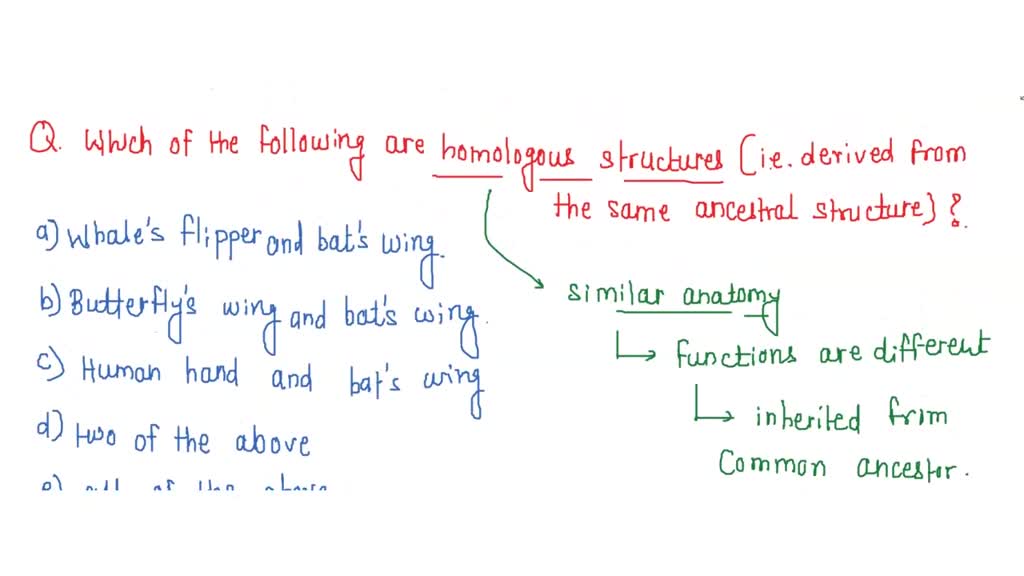 Q. Which of the following are homologous structures (i.e. derived from
the same ancestral structure) ?
a) Whale's flipper and bat's wing.
b) Butterfly's wing and bat's wing.
c) Human hand and bat's wing
d) two of the above
similar anatomy
functions are different
inherited from
Common ancestor.